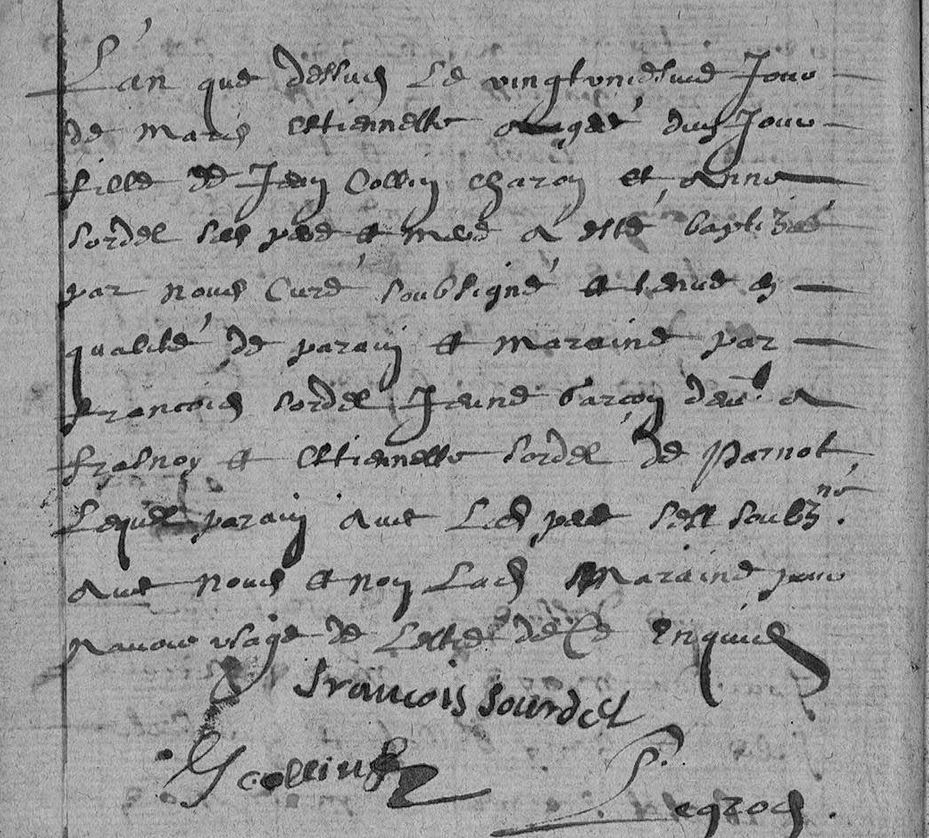 L'an que dessus le vingtuniesme Jour
de mars Ettiennette aagee d'un Jour
fille de Jean Collin charon et Anne
sordel ses pere et mere a esté baptizeé
par nous Curé soubsigné et tenue en
qualité de parain et maraine par
francois sordel Jeune garcon a
fresnoy et Ettiennette sordel de parnot
Lequel parain avec Led pere s'est soubz.né
avec nous et non Lad Maraine pour
n'avoir usage de Lettre de Ce Enquise
francois sourdel
J collin
Legros.